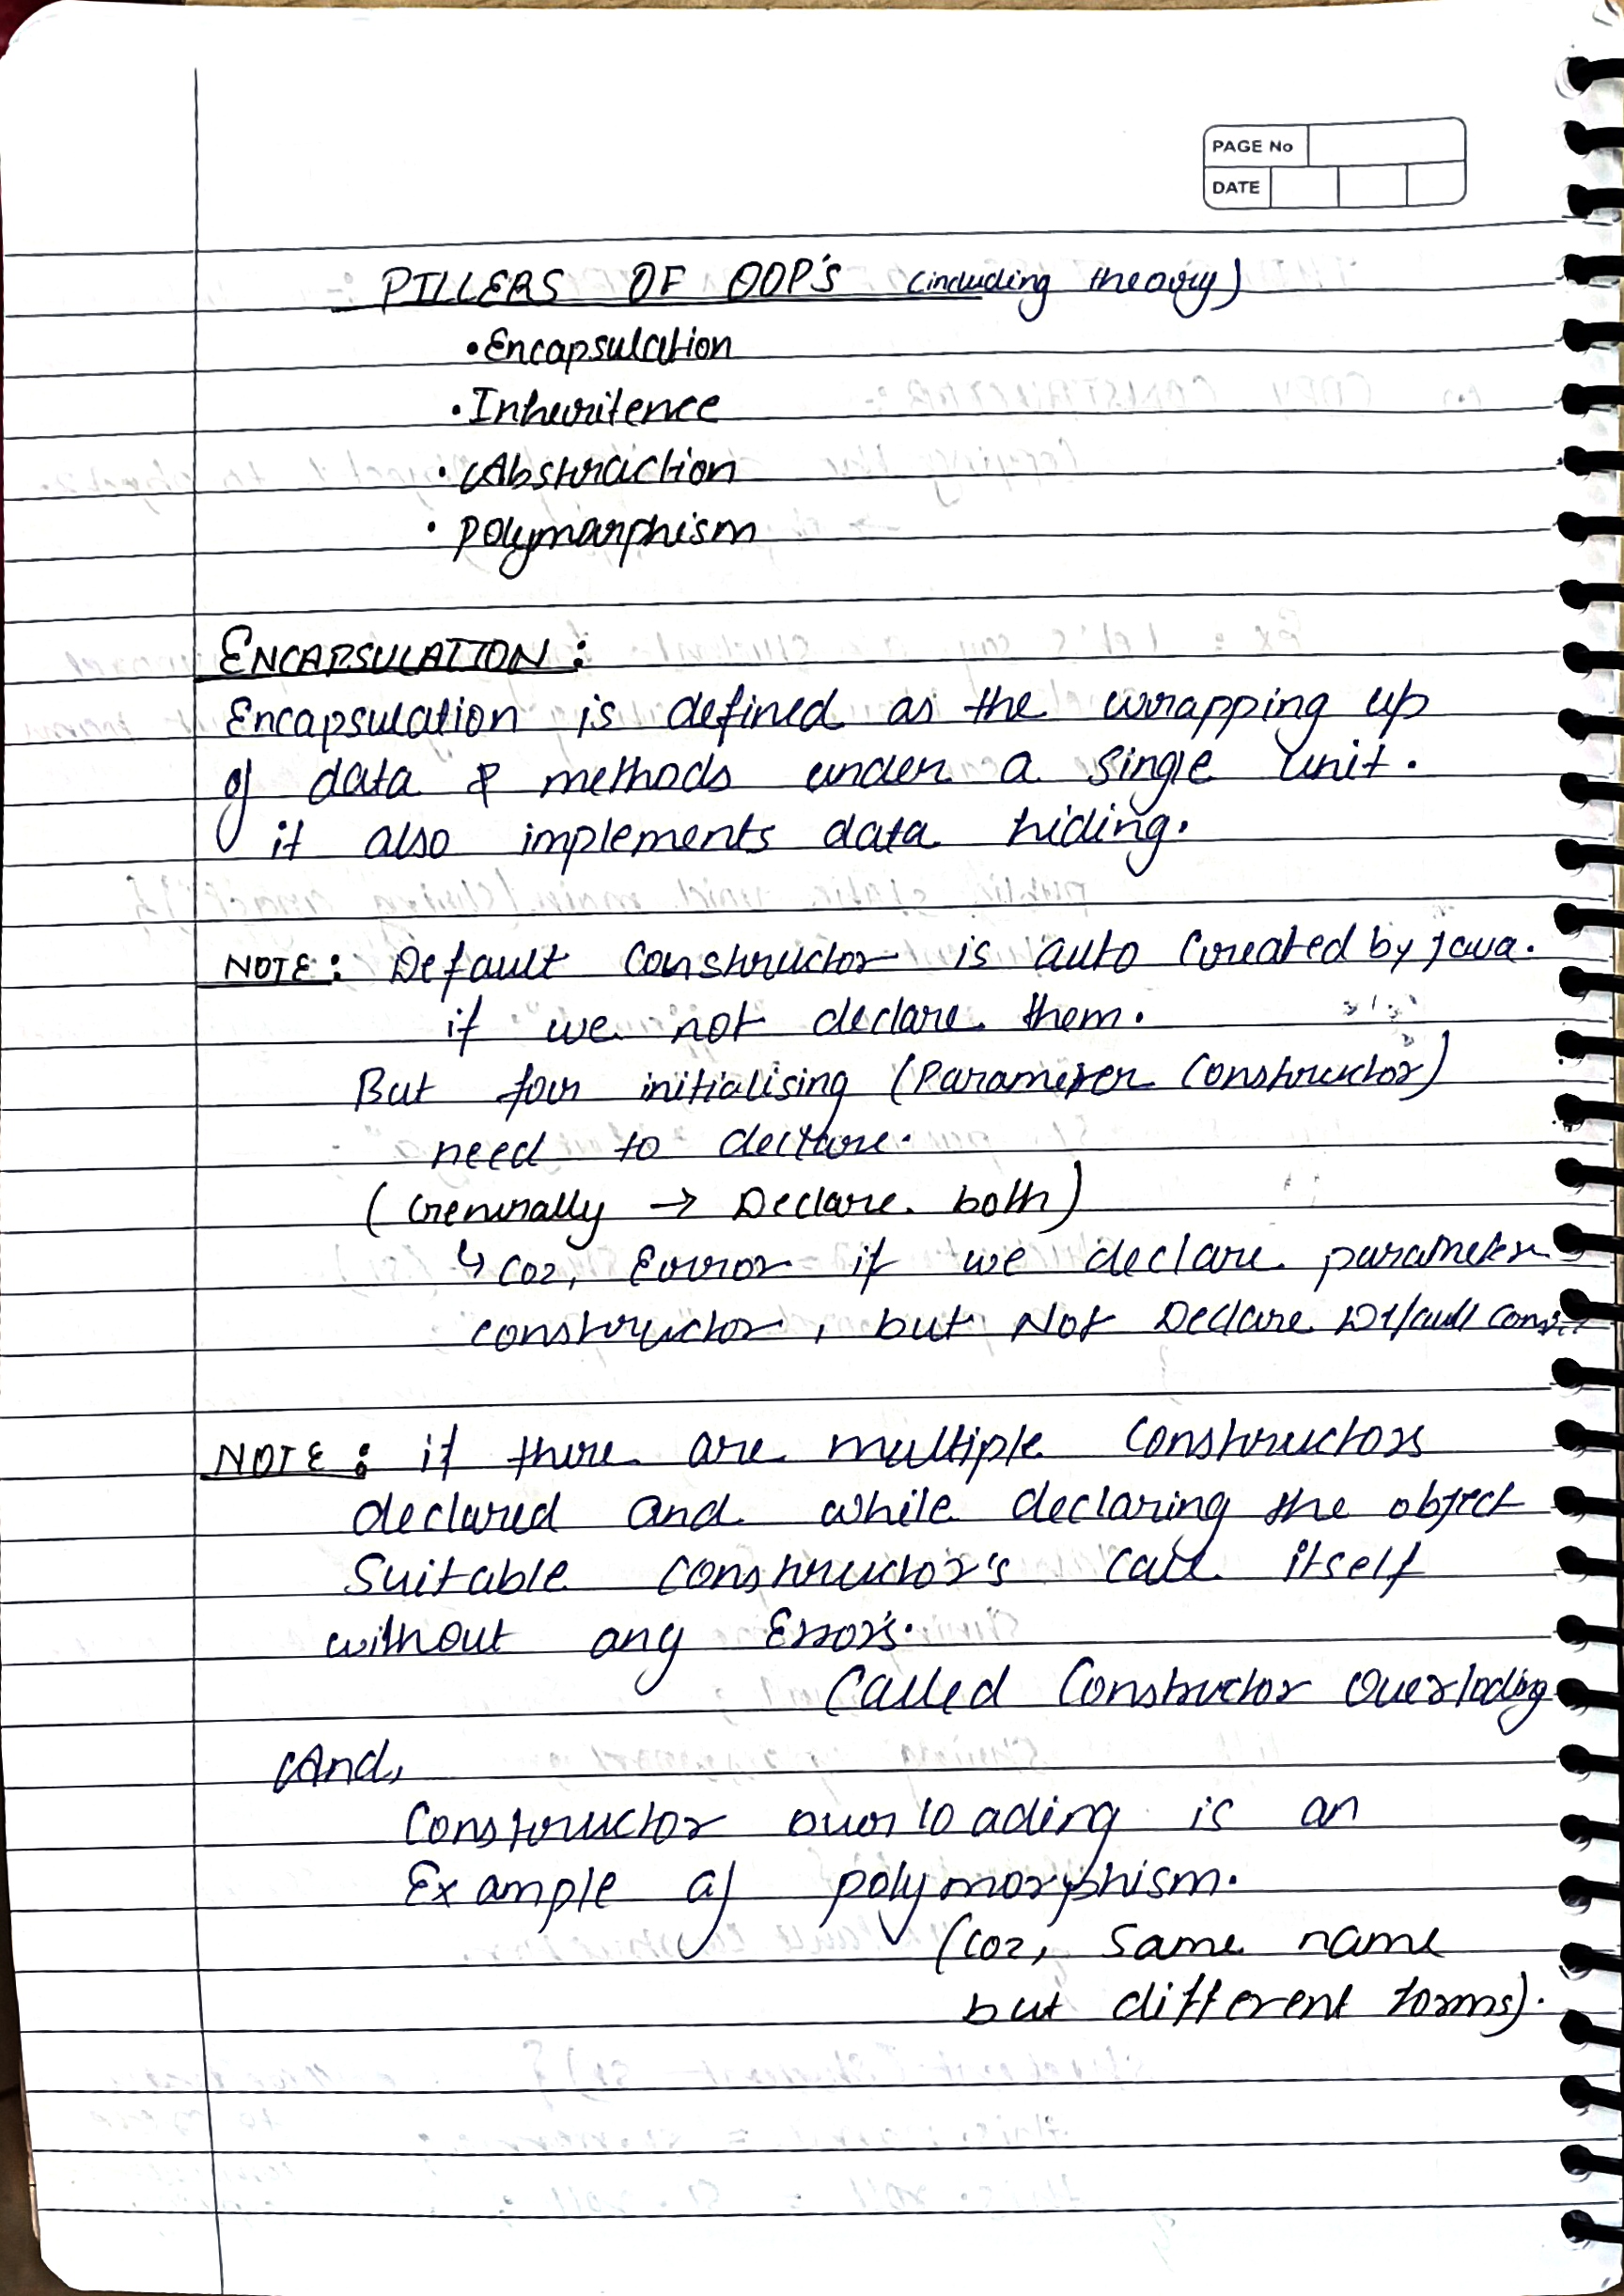 PAGE No
DATE
PILLERS OF OOP'S (including theory)
• Encapsulation
• Inheritence
• Abstraction
• Polymarphism
ENCAPSULATION :
Encapsulation is defined as the wrapping up
of data & methods under a single unit.
it also implements data hiding.
NOTE : Default Constructor is auto Created by java.
if we not declare them.
But for initialising (Parameter Constructor)
need to declare.
(Generally → Declare both)
↳ Coz, Error if we declare parameter
constructor, but Not Declare Default Const.
NOTE : if there are multiple Constructors
declared and while declaring the object
Suitable Constructor's Call itself
without any Error's.
Called Constructor Overloding
And,
Constructor overloading is an
Example of polymorphism.
(Coz, Same name
but different forms).